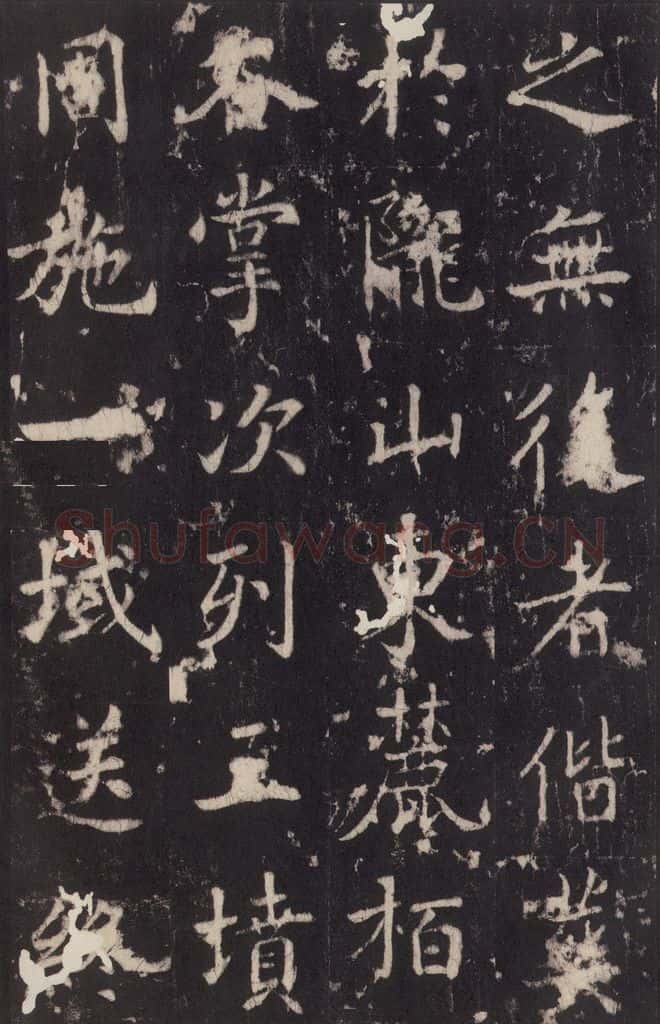 之無後者偕葬
於隴山東麓栢
谷掌次列五墳
周施一域送終
Shufawang.CN